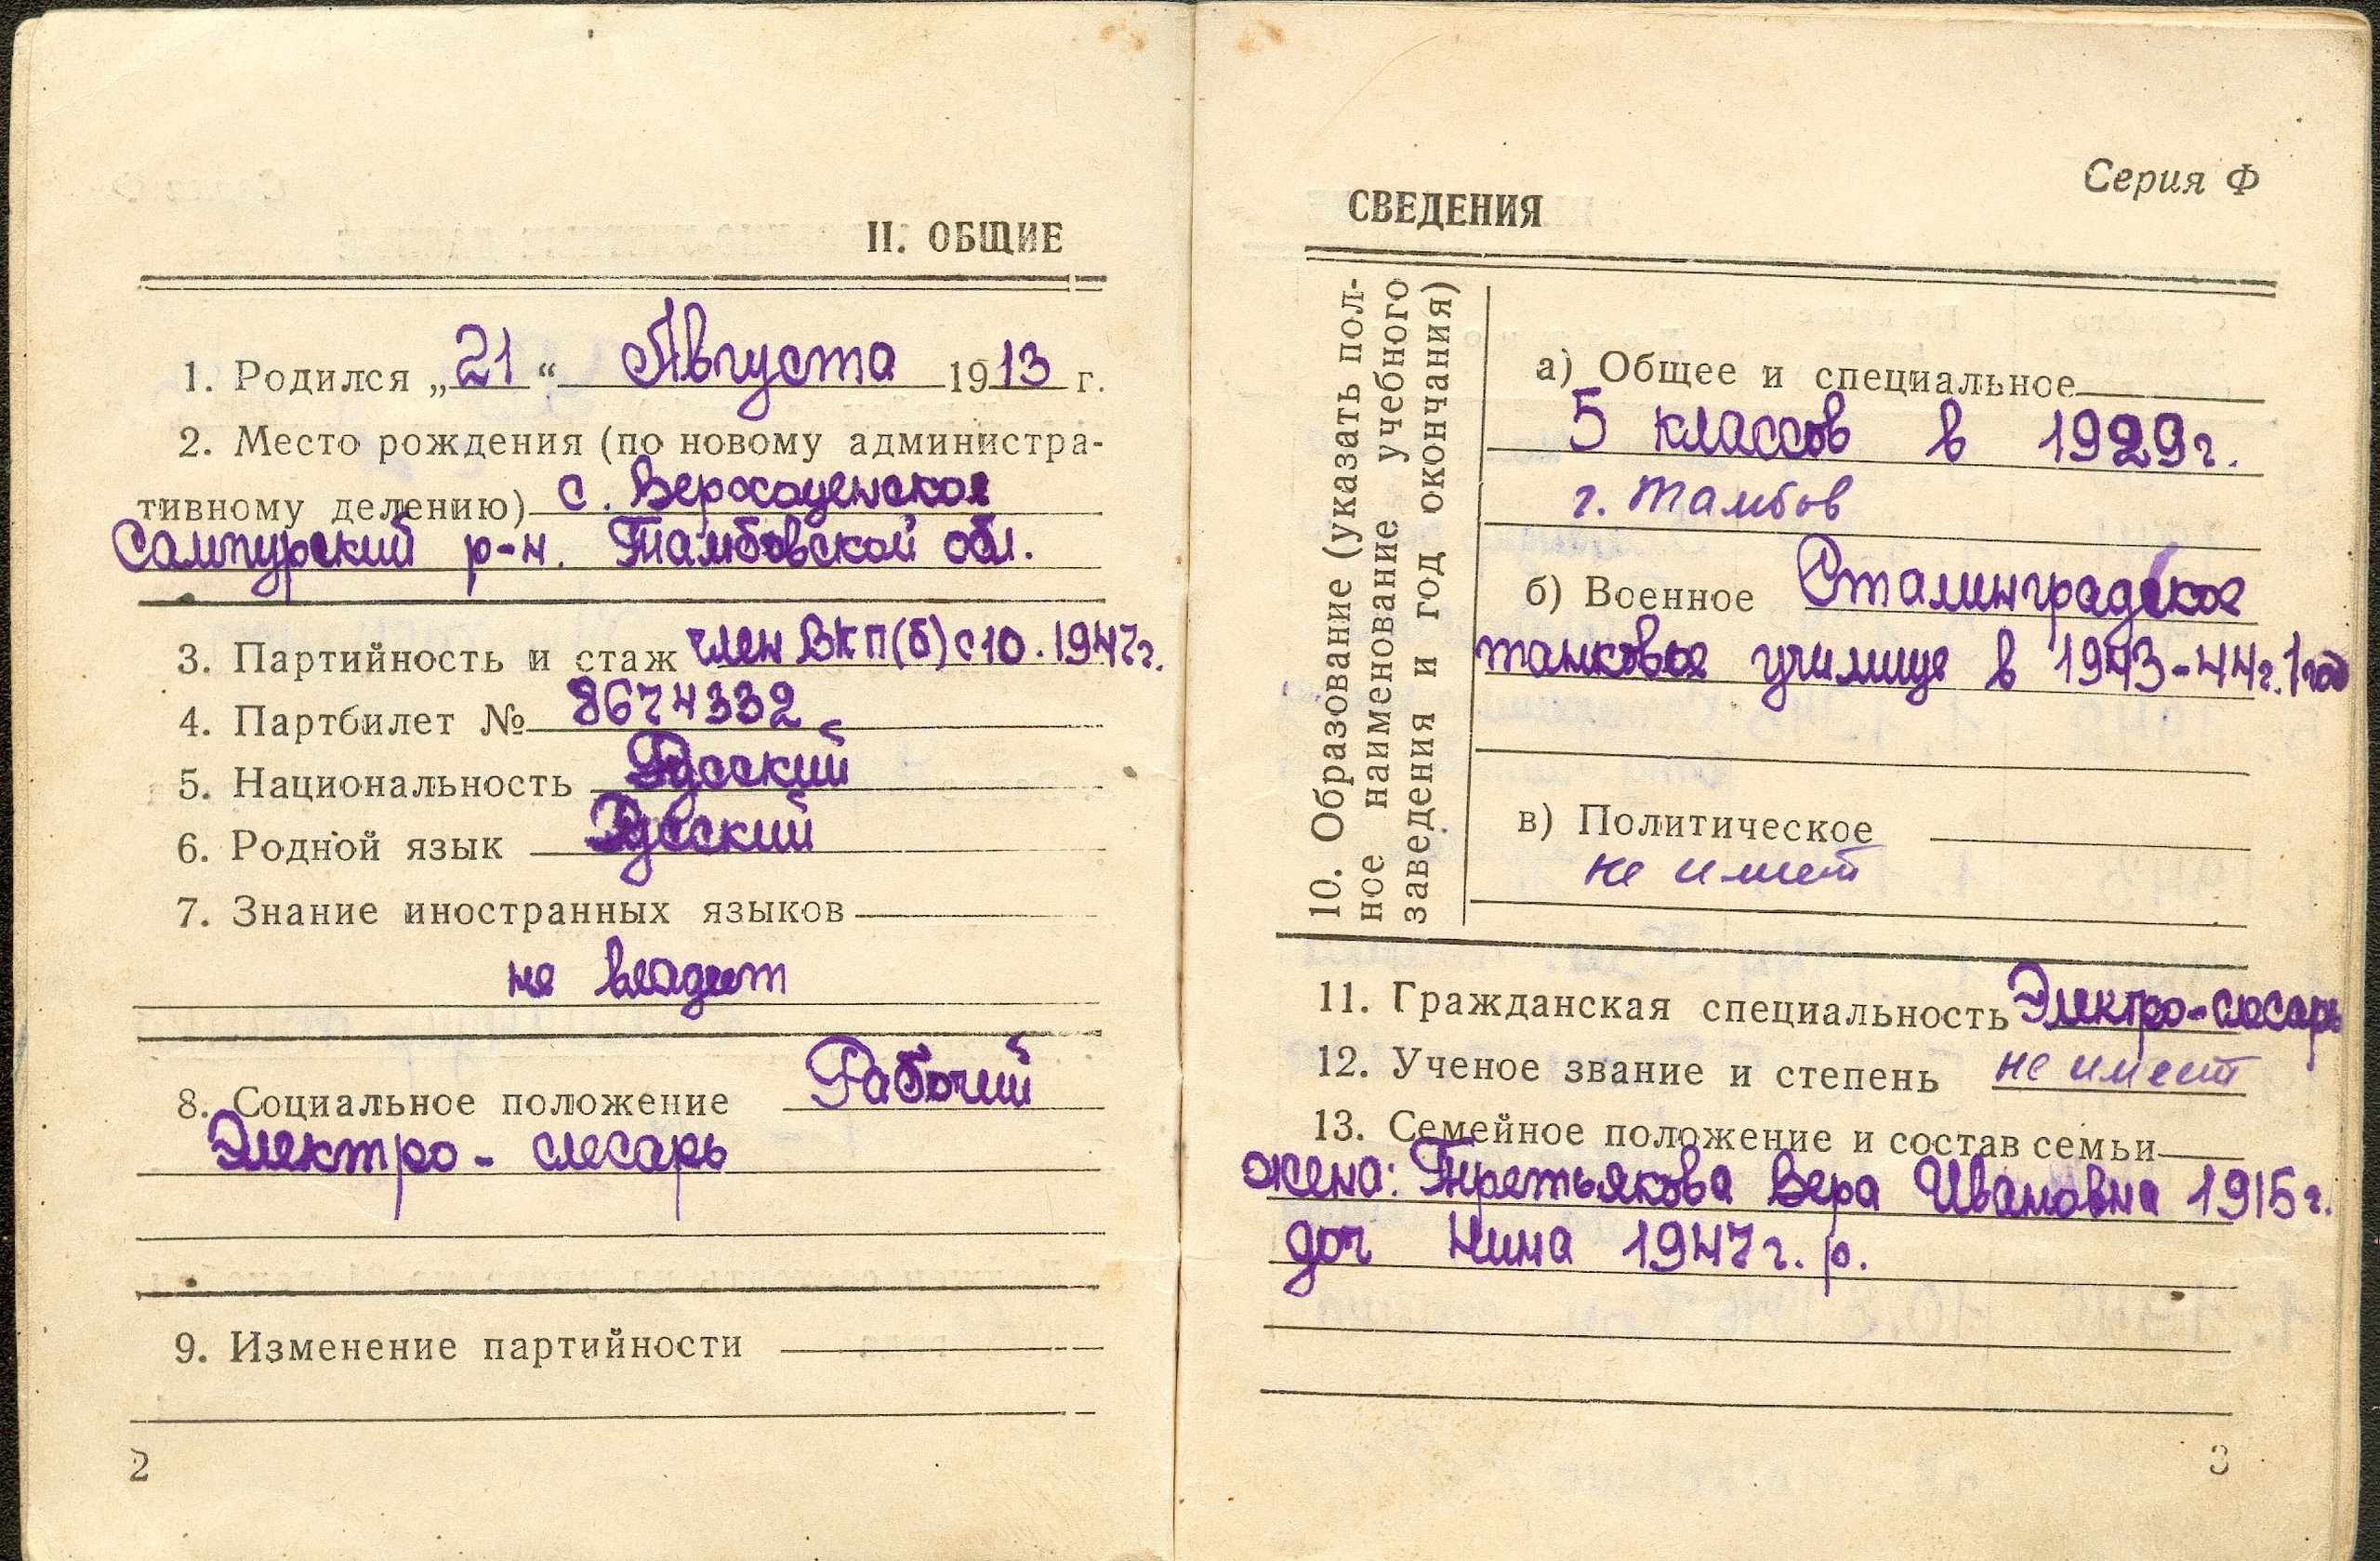 II. ОБЩИЕ
1. Родился „21“ Августа 1913 г.
2. Место рождения (по новому администра-
тивному делению) с. Верхоценское
Сампурский р-н. Тамбовской обл.
3. Партийность и стаж член ВКП(б) с 10.1947г.
4. Партбилет № 8674332
5. Национальность Русский
6. Родной язык Русский
7. Знание иностранных языков
не владеет
8. Социальное положение Рабочий
Электро- слесарь
9. Изменение партийности
2
Серия Ф
СВЕДЕНИЯ
10. Образование (указать пол-
ное наименование учебного
заведения и год окончания)
а) Общее и специальное
5 классов в 1929г.
г. Тамбов
б) Военное Сталинградское
танковое училище в 1943-44г. 1 год
в) Политическое
не имеет
11. Гражданская специальность Электро-слесарь
12. Ученое звание и степень не имеет
13. Семейное положение и состав семьи
жена: Третьякова Вера Ивановна 1915г.
доч Нина 1947г. р.
3